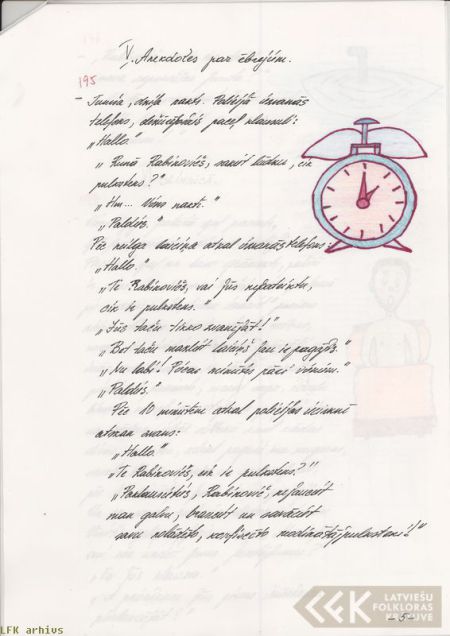 V. Anekdotes par ebrejiem.
195
- Tumša, dziļa nakts. Policijā iezvanās
telefons, dežurējošais paceļ klausuli:
„Hallo."
„Runā Rabinovičs, sakiet lūdzu, cik
pulkstens?"
„Hm... Viens naktī."
„Paldies."
Pēc neilga laiciņa atkal iezvanās telefons:
„Hallo."
„Te Rabinovičs, vai Jūs nepateiktu,
cik ir pulkstens."
„Jūs taču tikko zvanījāt!"
„Bet taču mazliet laiciņš jau ir pagājis."
„Nu labi! Piecas minūtes pāri vieniem."
„Paldies."
Pēc 10 minūtēm atkal policijas iecirknī
atskan zvans:
„Hallo."
„Te Rabinovičs, cik ir pulkstens?"
„Paklausieties, Rabinovič, nejauciet
man galvu, brauciet un savāciet
savu nolādēto, konfiscēto modinātājpulksteni!"
- 5 -
LFK arhīvs
LATVIEŠU
FOLKLORAS
KRĀTUVE